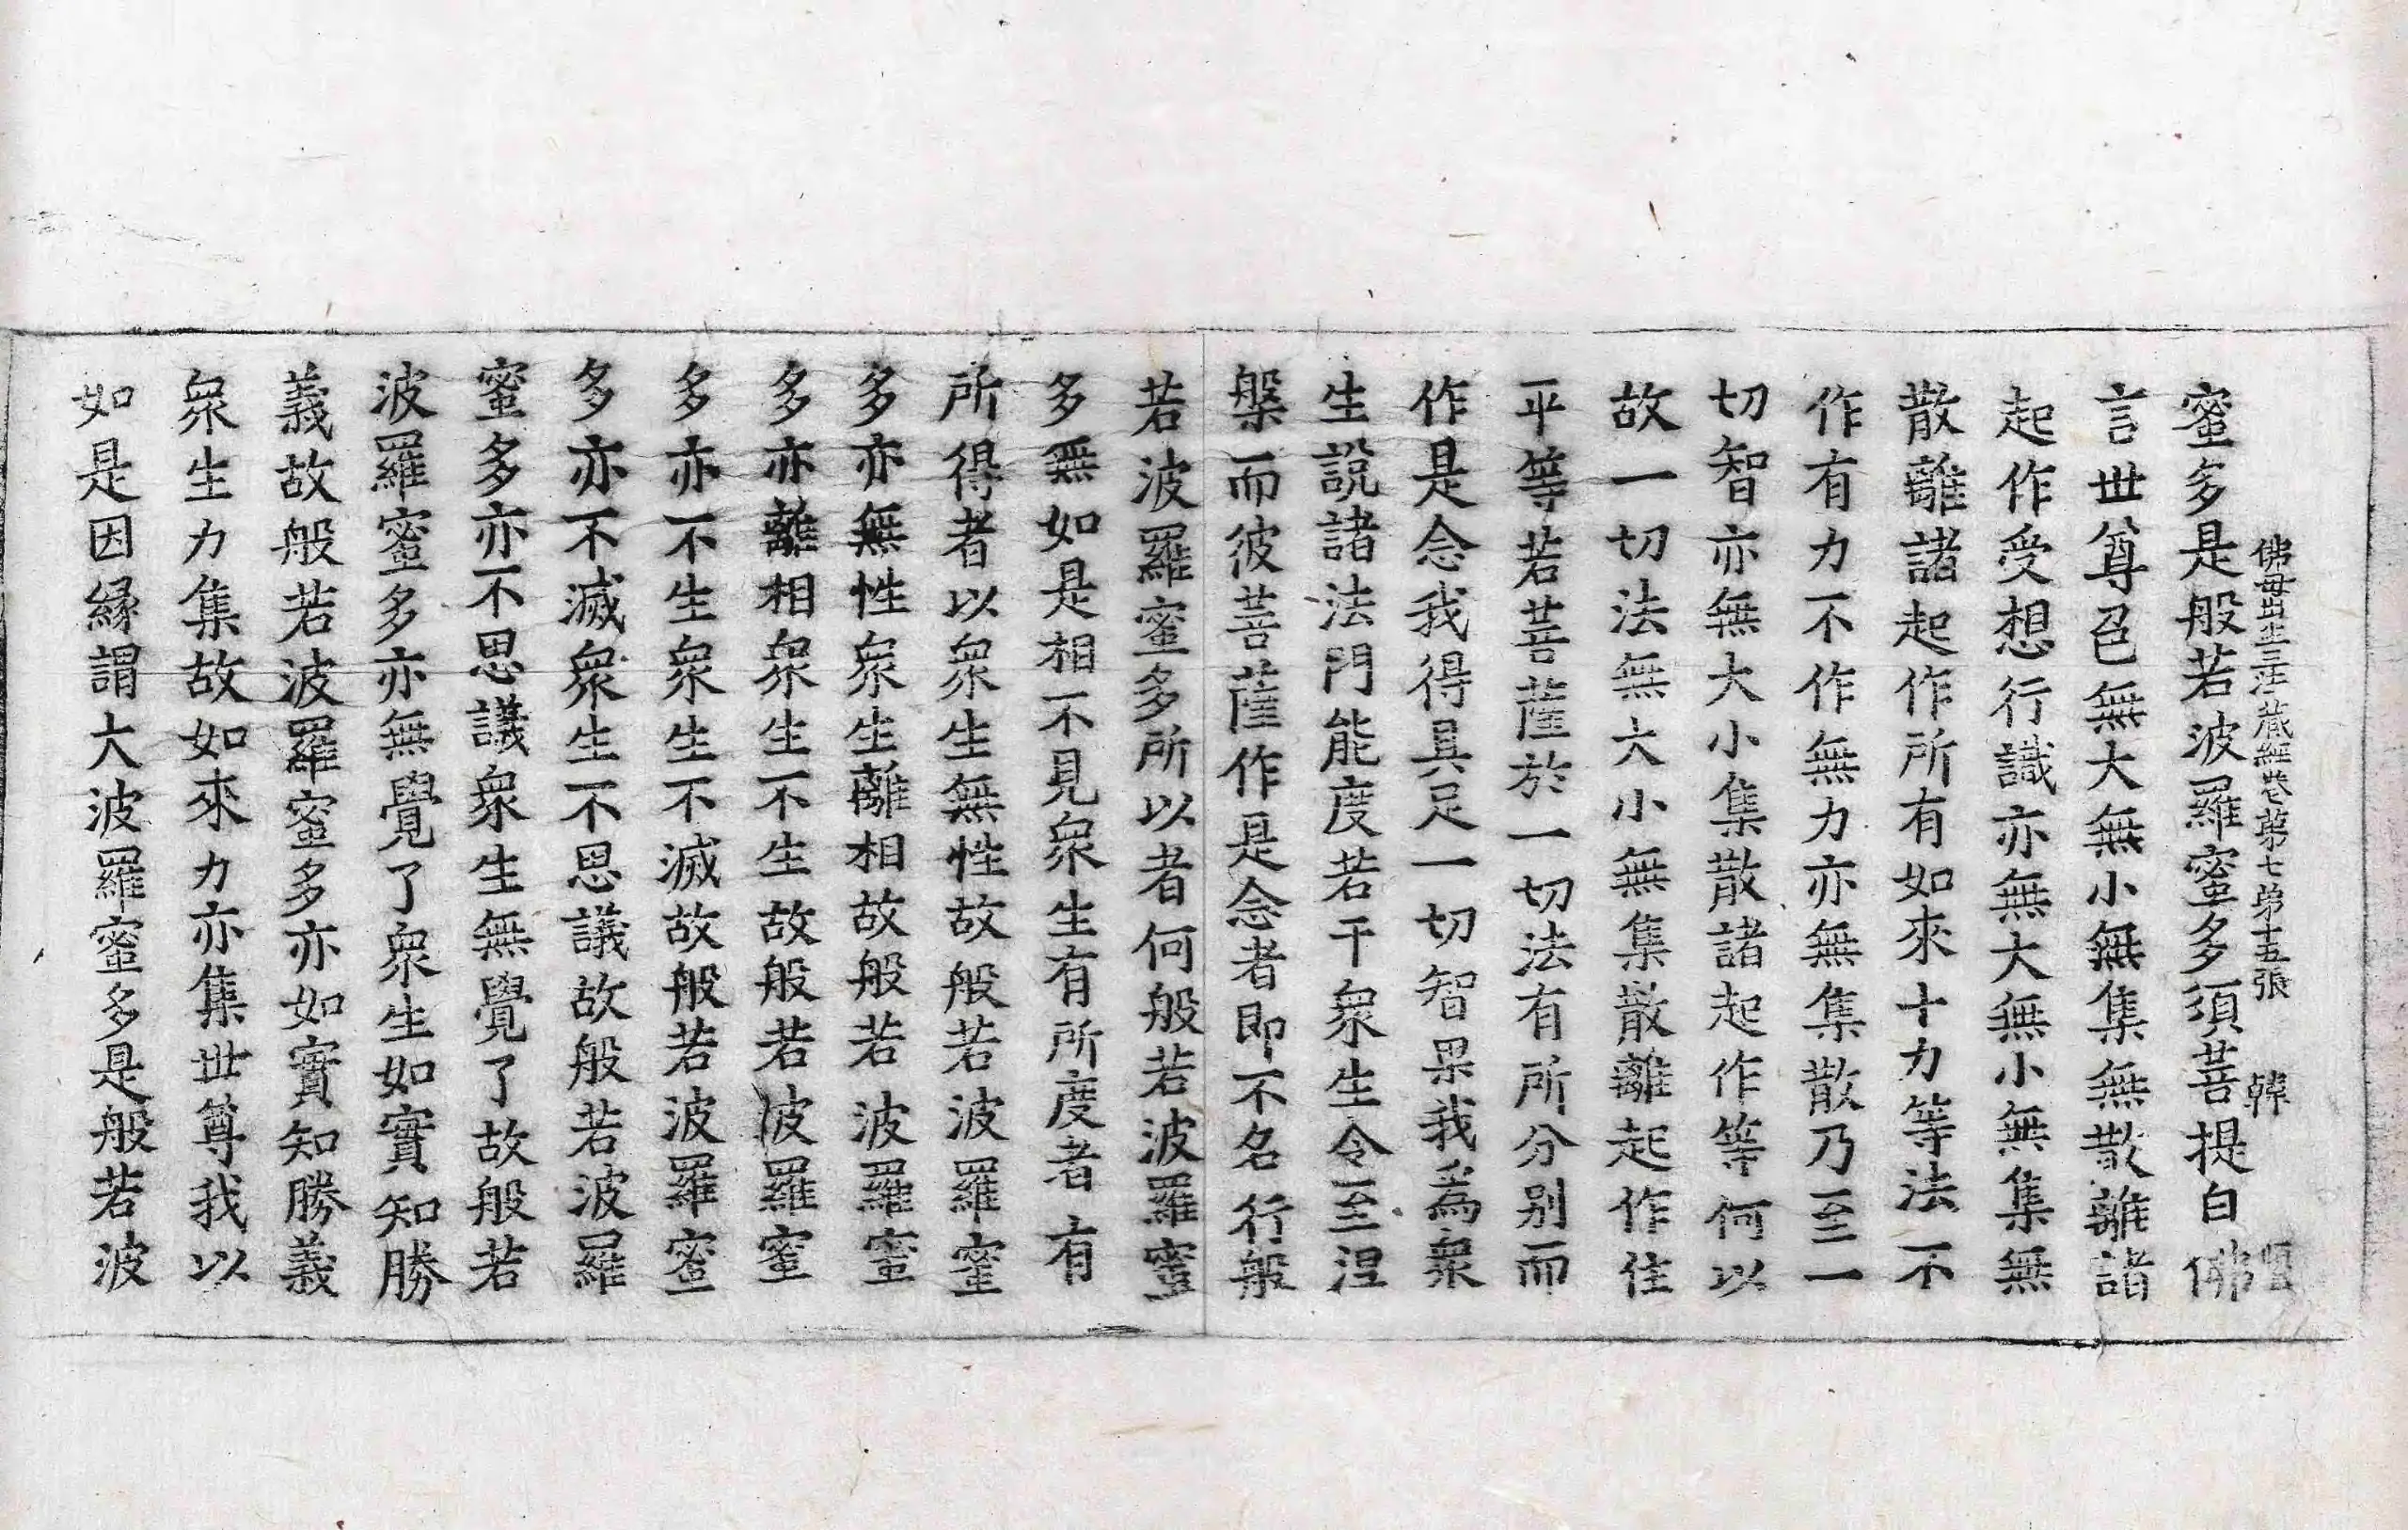 佛母出生三法藏經卷第七第十五張 韓
蜜多是般若波羅蜜多須菩提白佛
言世尊色無大無小無集無散離諸
起作受想行識亦無大無小無集無
散離諸起作所有如來十力等法不
作有力不作無力亦無集散乃至一
切智亦無大小集散諸起作等何以
故一切法無大小無集散離起作住
平等若菩薩於一切法有所分別而
作是念我得具足一切智果我爲衆
生說諸法門能度若干衆生令至涅
槃而彼菩薩作是念者即不名行般
若波羅蜜多所以者何般若波羅蜜
多無如是相不見衆生有所度者有
所得者以衆生無性故般若波羅蜜
多亦無性衆生離相故般若波羅蜜
多亦離相衆生不生故般若波羅蜜
多亦不生衆生不滅故般若波羅蜜
多亦不滅衆生不思議故般若波羅
蜜多亦不思議衆生無覺了故般若
波羅蜜多亦無覺了衆生如實知勝
義故般若波羅蜜多亦如實知勝義
衆生力集故如來力亦集世尊我以
如是因緣謂大波羅蜜多是般若波